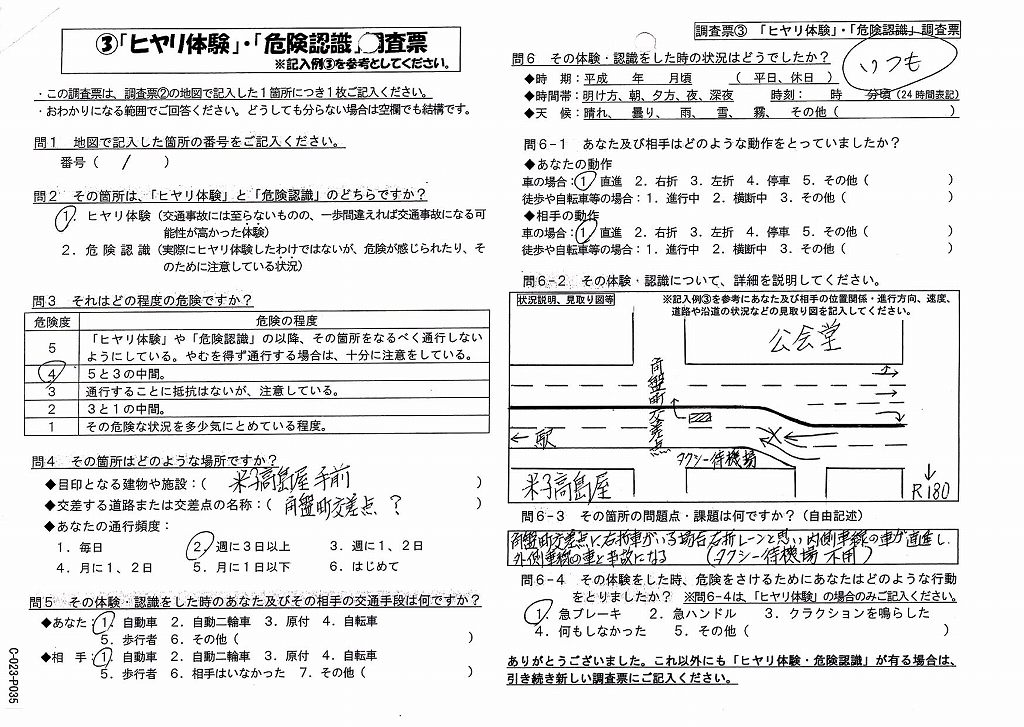 ③「ヒヤリ体験」・「危険認識」調査票
※記入例③を参考としてください。
・この調査票は、調査票②の地図で記入した１箇所につき１枚ご記入ください。
・おわかりになる範囲でご回答ください。どうしても分らない場合は空欄でも結構です。
問１　地図で記入した箇所の番号をご記入ください。
番号（　1　）
問２　その箇所は、「ヒヤリ体験」と「危険認識」のどちらですか？
１．ヒヤリ体験（交通事故には至らないものの、一歩間違えれば交通事故になる可
能性が高かった体験）
２．危険認識（実際にヒヤリ体験したわけではないが、危険が感じられたり、そ
のために注意している状況）
問３　それはどの程度の危険ですか？
危険度　危険の程度
５　「ヒヤリ体験」や「危険認識」の以降、その箇所をなるべく通行しない
ようにしている。やむを得ず通行する場合は、十分に注意をしている。
４　５と３の中間。
３　通行することに抵抗はないが、注意している。
２　３と１の中間。
１　その危険な状況を多少気にとめている程度。
問４　その箇所はどのような場所ですか？
◆目印となる建物や施設：（　米子高島屋 手前　）
◆交差する道路または交差点の名称：（　角盤町交差点 ？　）
◆あなたの通行頻度：
１．毎日　２．週に３日以上　３．週に１、２日
４．月に１、２日　５．月に１日以下　６．はじめて
問５　その体験・認識をした時のあなた及びその相手の交通手段は何ですか？
◆あなた：１．自動車　２．自動二輪車　３．原付　４．自転車
５．歩行者　６．その他（　）
◆相　手：１．自動車　２．自動二輪車　３．原付　４．自転車
５．歩行者　６．相手はいなかった　７．その他（　）
C-023-P035
調査票③　「ヒヤリ体験」・「危険認識」調査票
問６　その体験・認識をした時の状況はどうでしたか？
いつも
◆時　期：平成　年　月頃　（　平日、休日　）
◆時間帯：明け方、朝、夕方、夜、深夜　時刻：　時　分頃（24 時間表記）
◆天　候：晴れ、　曇り、　雨、　雪、　霧、　その他（　）
問６-１　あなた及び相手はどのような動作をとっていましたか？
◆あなたの動作
車の場合：１．直進　２．右折　３．左折　４．停車　５．その他（　）
徒歩や自転車等の場合：１．進行中　２．横断中　３．その他（　）
◆相手の動作
車の場合：１．直進　２．右折　３．左折　４．停車　５．その他（　）
徒歩や自転車等の場合：１．進行中　２．横断中　３．その他（　）
問６-２　その体験・認識について、詳細を説明してください。
状況説明、見取り図等
※記入例③を参考にあなた及び相手の位置関係・進行方向、速度、
道路や沿道の状況などの見取り図を記入してください。
公会堂
角盤町交差点
←駅
タクシー待機場
米子高島屋
R180
問６-３　その箇所の問題点・課題は何ですか？（自由記述）
角盤町交差点に右折車がいる場合右折レーンと思い内側車線の車が直進し、
外側車線の車と事故になる　（タクシー待機場 不用）
問６-４　その体験をした時、危険をさけるためにあなたはどのような行動
をとりましたか？　※問６-４は、「ヒヤリ体験」の場合のみご記入ください。
１．急ブレーキ　２．急ハンドル　３．クラクションを鳴らした
４．何もしなかった　５．その他（　）
ありがとうございました。これ以外にも「ヒヤリ体験・危険認識」が有る場合は、
引き続き新しい調査票にご記入ください。